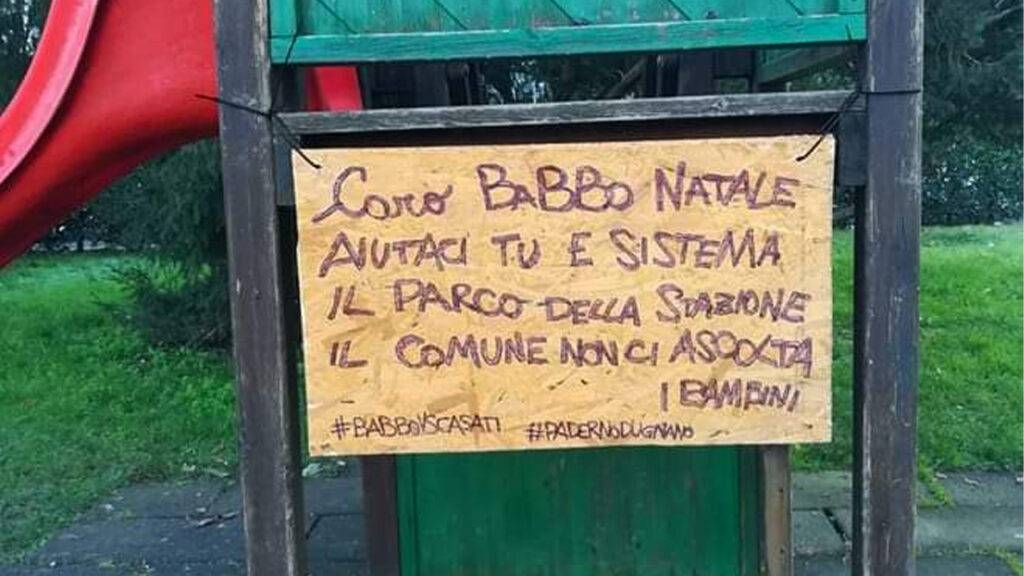 Caro BaBBo NATALE
AIUTACI TU E SISTEMA
IL PARCO DELLA STAZIONE
IL COMUNE NON CI ASCOLTA
I BAMBINI
#BABBOVSCASATI #PADERNODUGNANO